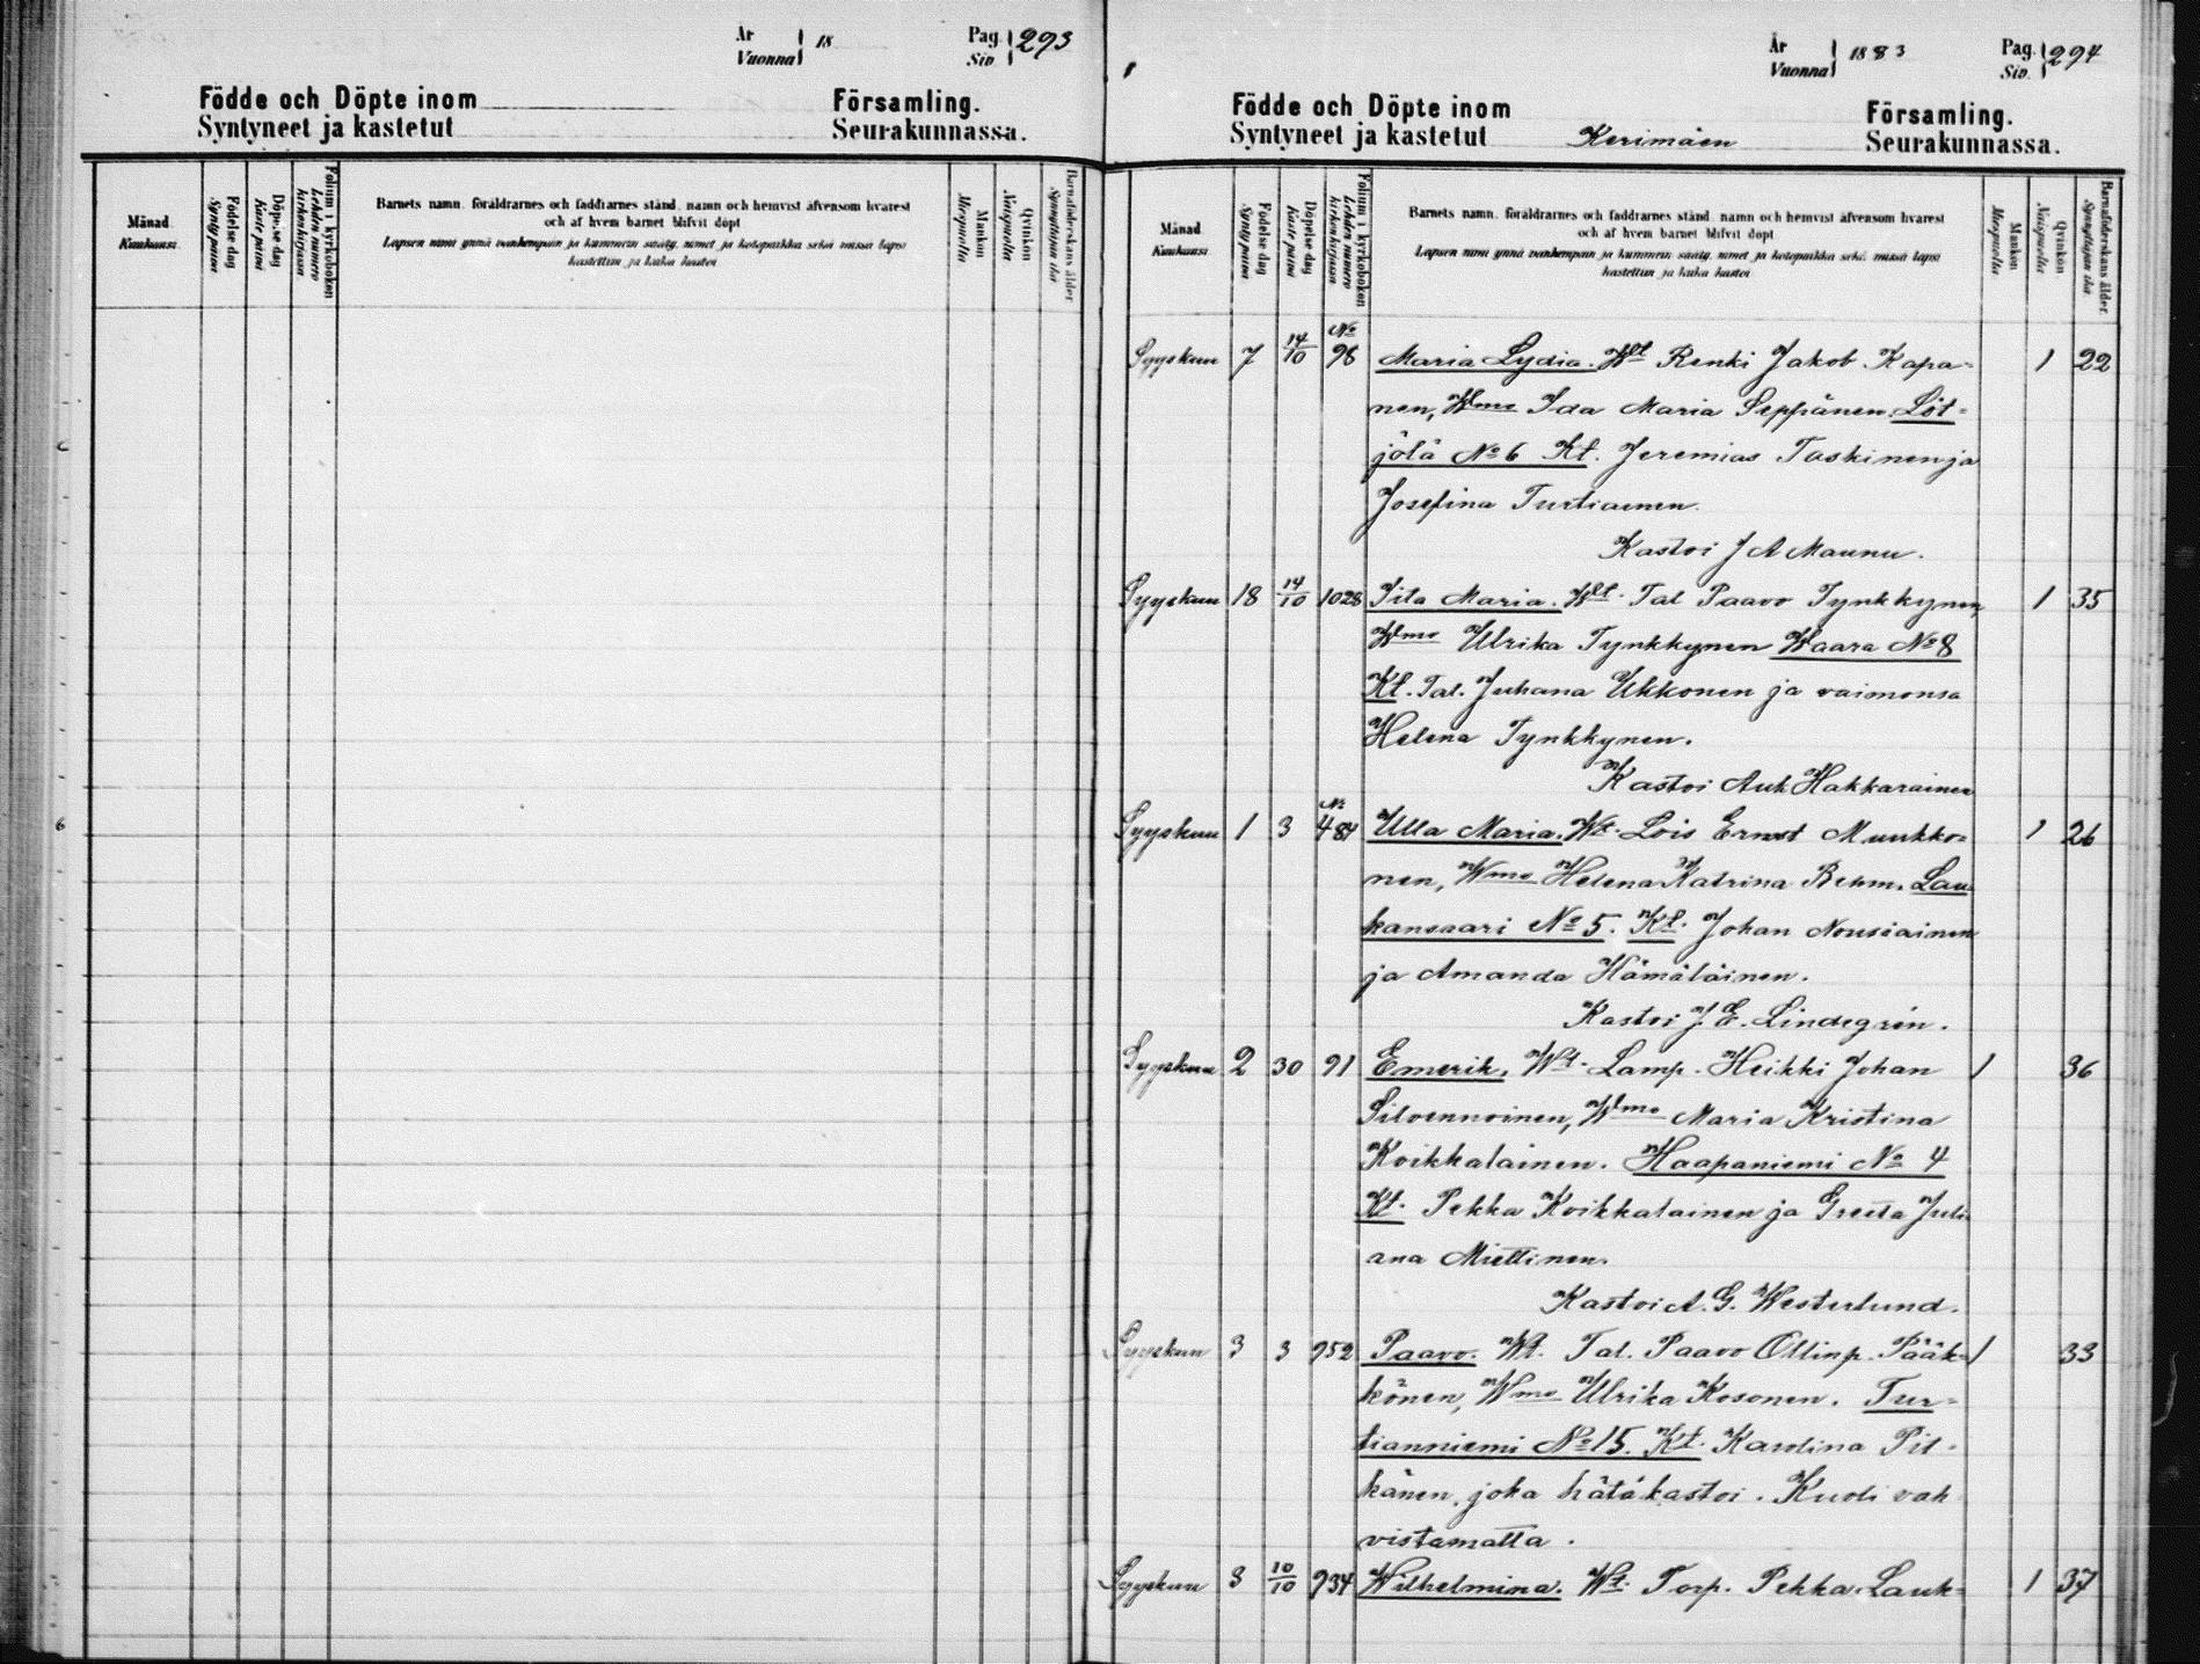 År
Vuonna 18
Pag.
Siv. 293
Födde och Döpte inom Församling.
Syntyneet ja kastetut Seurakunnassa.
Månad Kuukausi
Födelse dag Synty päivä
Döpelse dag Kaste päivä
Folium i kyrkoboken Lehden numero kirkonkirjassa
Barnets namn, föräldrarnes och faddrarnes stånd, namn och hemvist äfvensom hvarest
och af hvem barnet blifvit döpt
Lapsen nimi ynnä vanhempain ja kummein sääty, nimet ja kotopaikka sekä missä lapsi
kastettiin ja kuka kastoi
Mankön Miespuolia
Qvinkön Naispuolia
Barnaföderskans ålder Synnyttäjän ikä
År
Vuonna 1883
Pag.
Siv. 294
Födde och Döpte inom Församling.
Syntyneet ja kastetut Kerimäen Seurakunnassa.
Månad Kuukausi
Födelse dag Synty päivä
Döpelse dag Kaste päivä
Folium i kyrkoboken Lehden numero kirkonkirjassa
Barnets namn, föräldrarnes och faddrarnes stånd, namn och hemvist äfvensom hvarest
och af hvem barnet blifvit döpt
Lapsen nimi ynnä vanhempain ja kummein sääty, nimet ja kotopaikka sekä missä lapsi
kastettiin ja kuka kastoi
Mankön Miespuolia
Qvinkön Naispuolia
Barnaföderskans ålder Synnyttäjän ikä
Syyskuu 7 14/10 No 98 Maria Lydia. Wt Renki Jakob Kapa- 1 22
nen, Wmo Ida Maria Seppänen. Löt-
jölä No 6 Kt. Jeremias Taskinen ja
Josefina Turtiainen.
Kastoi J A Maunu.
Syyskuu 18 14/10 1028 Iita Maria. Wt. Tal Paavo Tynkkynen, 1 35
Wmo Ulrika Tynkkynen Waara No 8
Kt. Tal. Juhana Ukkonen ja vaimonsa
Helena Tynkkynen.
Kastoi Auk Hakkarainen
Syyskuu 1 3 No 484 Ulla Maria. Wt. Lois Ernst Muukko- 1 26
nen, Wmo Helena Katrina Behm. Lau
kansaari No 5. Kt. Johan Nousiainen
ja Amanda Hämäläinen.
Kastoi J. E. Lindegrén.
Syyskuu 2 30 91 Emerik. Wt. Lamp. Heikki Johan 1 36
Silvennoinen, Wmo Maria Kristina
Koikkalainen. Haapaniemi No 4
Kt. Pekka Koikkalainen ja Greeta Juli-
ana Miettinen.
Kastoi A. G. Westerlund.
Syyskuu 3 3 952 Paavo. Wt. Tal. Paavo Ollinp. Pääk- 1 33
könen, Wmo Ulrika Kosonen. Tur-
tianniemi No 15. Kt. Karolina Pit-
känen, joka hätäkastoi. Kuoli vah
vistamatta.
Syyskuu 3 10/10 934 Wilhelmina. Wt. Torp. Pekka Lauk- 1 37